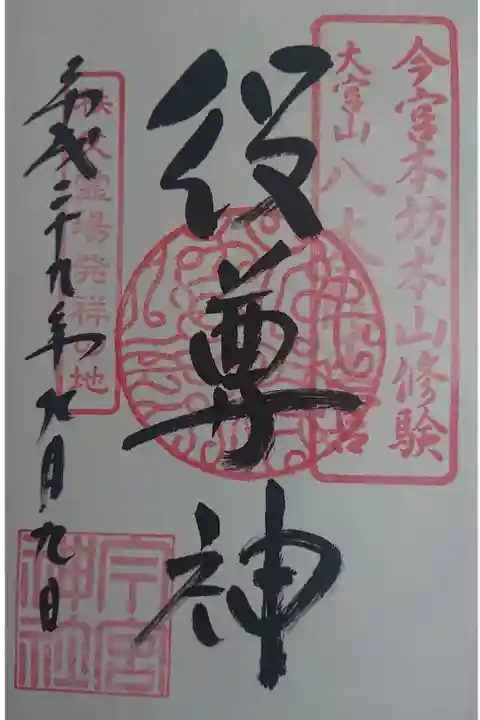 今宮本坊本山修験
大宮山八大
役尊神
秩父霊場発祥の地
平成二十九年九月九日
今宮神社